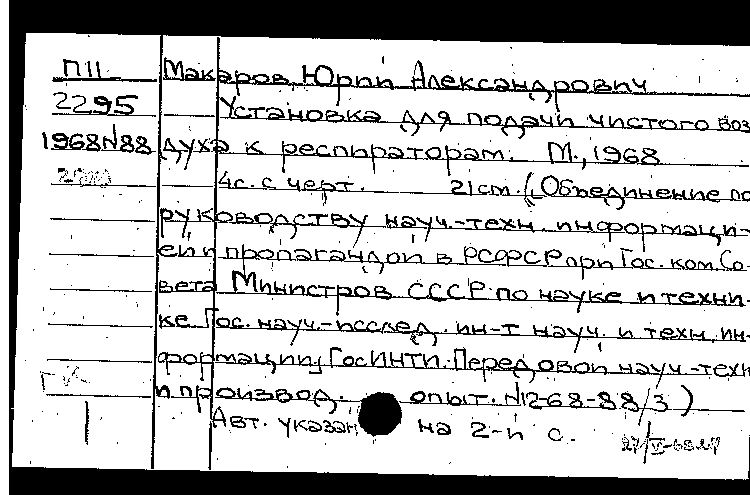 П11 Макаров, Юрий Александрович
2295 Установка для подачи чистого воз
1968N88 духа к респираторам. М., 1968
4с. с черт. 21см. (Объединение по
руководству науч.-техн. информаци-
ей и пропагандой в РСФСР при Гос. ком. Со-
вета Министров СССР по науке и техни-
ке Гос. науч.-исслед. ин-т науч. и техн. ин-
формации, ГосИНТИ. Передовой науч.-техн
и производ. опыт. N12-68-88/3)
Авт. указан на 2-й с.